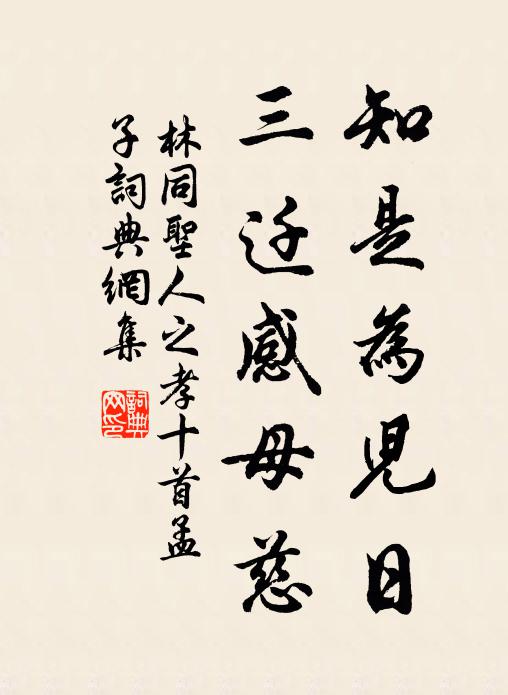 知是為児日
三迁感母慈
林同聖人之孝十首孟
子詞典網集
詞典
网印